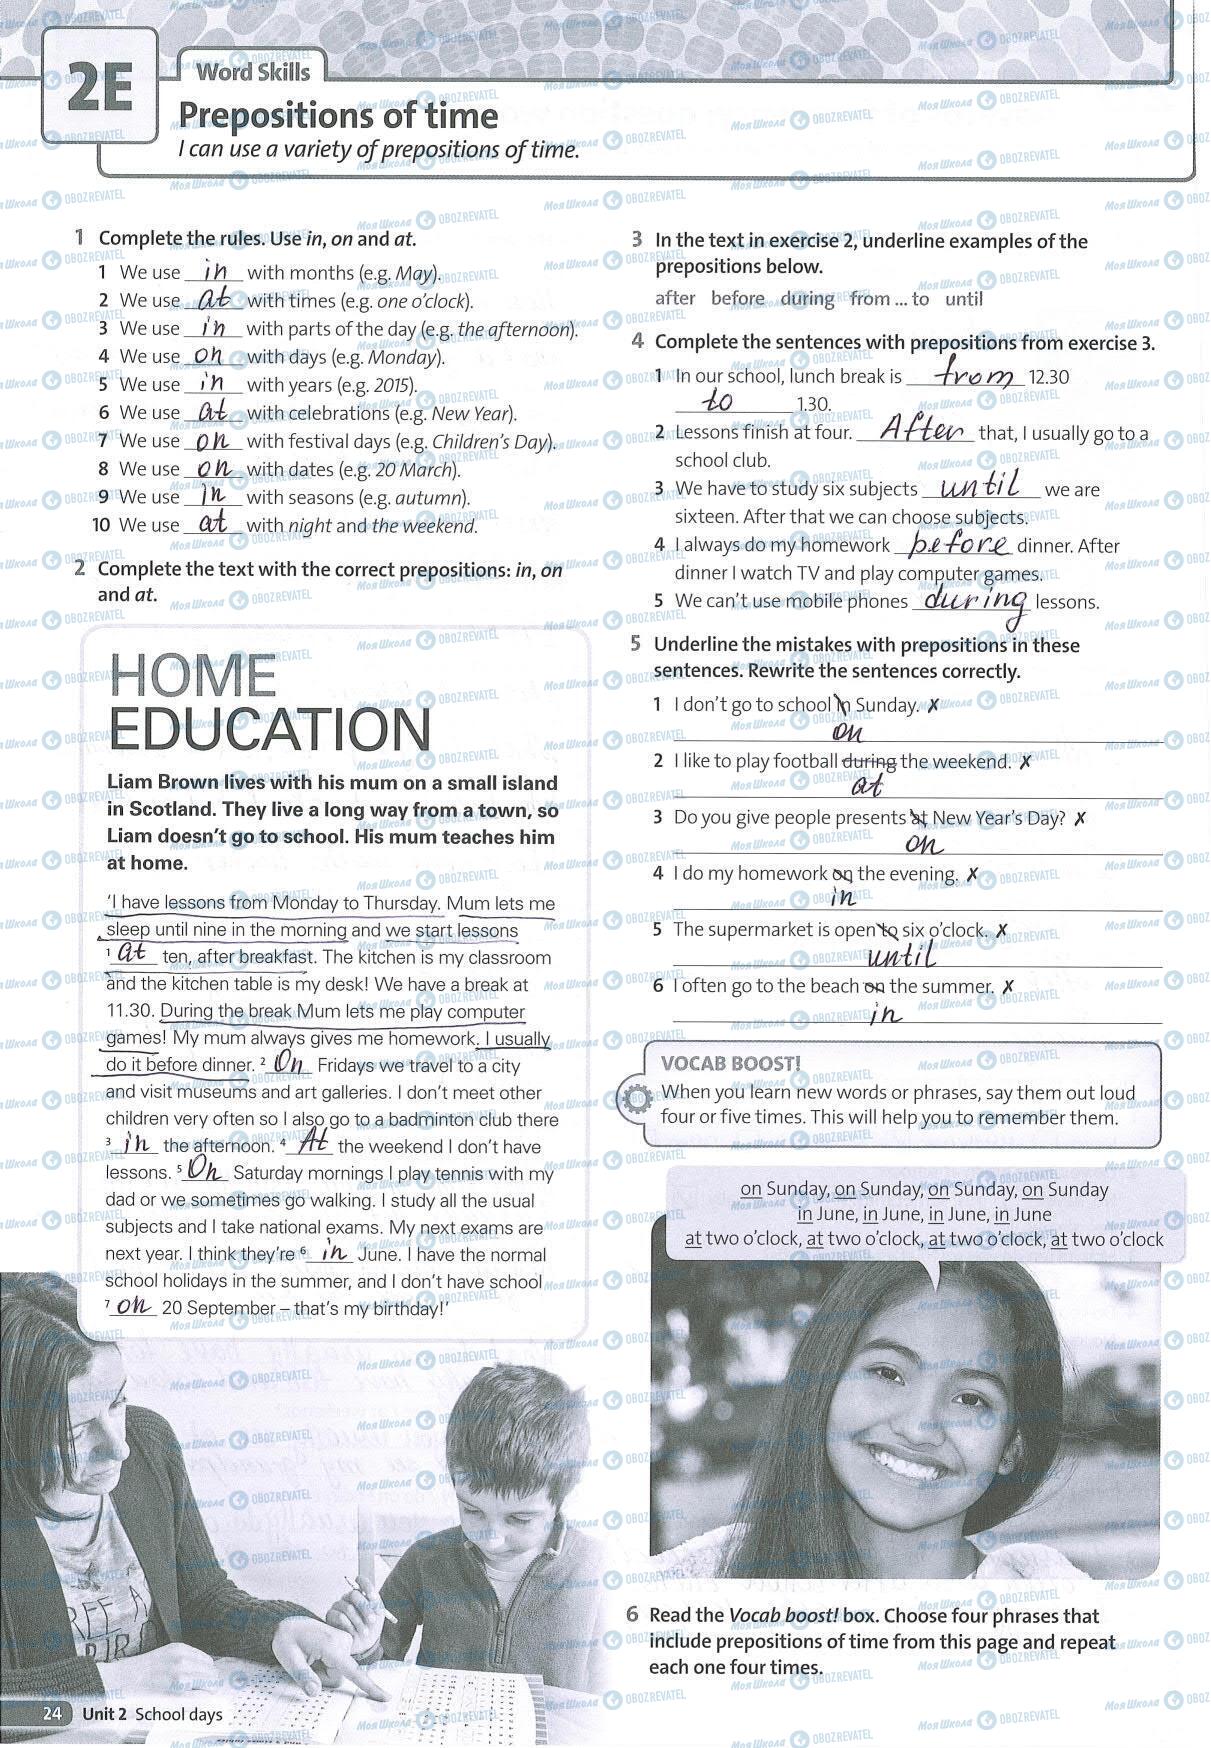 2E
Word Skills
Prepositions of time
I can use a variety of prepositions of time.
1 Complete the rules. Use in, on and at.
1 We use in with months (e.g. May).
2 We use at with times (e.g. one o'clock).
3 We use in with parts of the day (e.g. the afternoon).
4 We use on with days (e.g. Monday).
5 We use in with years (e.g. 2015).
6 We use at with celebrations (e.g. New Year).
7 We use on with festival days (e.g. Children's Day).
8 We use on with dates (e.g. 20 March).
9 We use in with seasons (e.g. autumn).
10 We use at with night and the weekend.
2 Complete the text with the correct prepositions: in, on
and at.
HOME
EDUCATION
Liam Brown lives with his mum on a small island
in Scotland. They live a long way from a town, so
Liam doesn't go to school. His mum teaches him
at home.
'I have lessons from Monday to Thursday. Mum lets me
sleep until nine in the morning and we start lessons
1 at ten, after breakfast. The kitchen is my classroom
and the kitchen table is my desk! We have a break at
11.30. During the break Mum lets me play computer
games! My mum always gives me homework. I usually
do it before dinner. 2 On Fridays we travel to a city
and visit museums and art galleries. I don't meet other
children very often so I also go to a badminton club there
3 in the afternoon. 4 At the weekend I don't have
lessons. 5 On Saturday mornings I play tennis with my
dad or we sometimes go walking. I study all the usual
subjects and I take national exams. My next exams are
next year. I think they're 6 in June. I have the normal
school holidays in the summer, and I don't have school
7 on 20 September – that's my birthday!'
24 Unit 2 School days
3 In the text in exercise 2, underline examples of the
prepositions below.
after before during from ... to until
4 Complete the sentences with prepositions from exercise 3.
1 In our school, lunch break is from 12.30
to 1.30.
2 Lessons finish at four. After that, I usually go to a
school club.
3 We have to study six subjects until we are
sixteen. After that we can choose subjects.
4 I always do my homework before dinner. After
dinner I watch TV and play computer games.
5 We can't use mobile phones during lessons.
5 Underline the mistakes with prepositions in these
sentences. Rewrite the sentences correctly.
1 I don't go to school in Sunday. ✗
on
2 I like to play football during the weekend. ✗
at
3 Do you give people presents at New Year's Day? ✗
on
4 I do my homework on the evening. ✗
in
5 The supermarket is open to six o'clock. ✗
until
6 I often go to the beach on the summer. ✗
in
VOCAB BOOST!
When you learn new words or phrases, say them out loud
four or five times. This will help you to remember them.
on Sunday, on Sunday, on Sunday, on Sunday
in June, in June, in June, in June
at two o'clock, at two o'clock, at two o'clock, at two o'clock
6 Read the Vocab boost! box. Choose four phrases that
include prepositions of time from this page and repeat
each one four times.
Моя Школа OBOZREVATEL